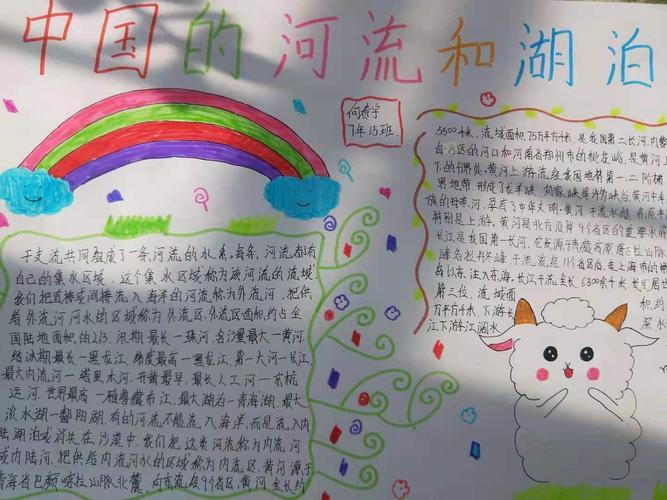 中国的河流和湖泊
何春宇
7年15班
干支流共同组成了一条河流的水系,每条河流都有
自己的集水区域,这个集水区域称为该河流的流域.
我们把直接或间接流入海洋的河流称为外流河,把供
给外流河河水的区域称为外流区.外流区面积约占全
国陆地面积的2/3.汛期最长—珠河.含沙量最大—黄河.
结冰期最长—黑龙江,纬度最高—黑龙江,第一大河—长江,
最大内流河—塔里木河.开凿最早、最长人工河—京杭
运河.世界最高—雅鲁藏布江.最大湖泊—青海湖.最大
淡水湖—鄱阳湖.有的河流不能流入海洋,而是流入内
陆湖泊或消失在沙漠中,我们把这类河流称为内流河
或内陆河.把供给内流河水的区域称为内流区.黄河源于
青海省巴颜喀拉山脉北麓,向东流经9个省区,黄河全长约
5500千米,流域面积75万平方千米,是我国第二长河.内蒙
自治区的河口和河南省郑州市的桃花峪,是黄河
下的侧界.黄河上游流经我国地界第一、二阶梯
族的母亲河,孕育了中华文明.黄河干流水
特别是上游,黄河是北方沿岸9个省区的重要水
长江是我国第一长河,发源于青藏高原唐古拉山脉
峰各拉丹冬峰,干流流经11个省区后,在上海市的崇
岛以东,注入东海.长江干流全长6300余千米,长度居世
第三位,流域面
万平方千米,下
江下游江阔水
积约
深水